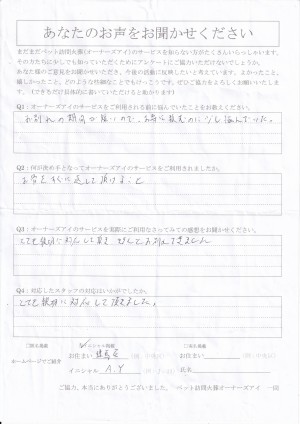 あなたのお声をお聞かせください
まだまだペット訪問火葬(オーナーズアイ)のサービスを知らない方がたくさんいらっしゃいます。
その方たちに少しでも知っていただくためにアンケートにご協力いただけないでしょうか。
あなた様のご意見をお聞かせいただき、今後の活動に反映したいと考えています。よかったこと、
嬉しかったこと、どのような些細なことでもけっこうです。ぜひご協力をよろしくお願いいたしま
す。（できるだけ具体的に書いていただけると助かります）
Q1：オーナーズアイのサービスをご利用される前に悩んでいたことをお教えください。
Q2：何が決め手となってオーナーズアイのサービスをご利用されましたか。
お骨をすぐに返して頂けること
Q3：オーナーズアイのサービスを実際にご利用なさってみての感想をお聞かせください。
Q4：対応したスタッフの対応はいかがでしたか。
とても親切に対応して頂きました。
ホームページでご紹介
□匿名掲載
イニシャル掲載
□実名掲載
お住まい
イニシャル A.Y
お住まい
氏名
ご協力、本当にありがとうございました。 ペット訪問火葬オーナーズアイ 一同